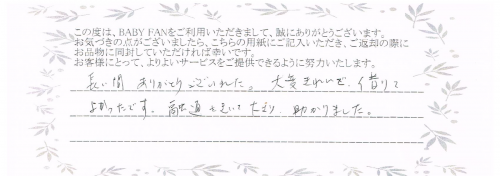 この度は、BABY FANをご利用いただきまして、誠にありがとうございます。
お気づきの点がございましたら、こちらの用紙にご記入いただき、ご返却の際に
お品物に同封していただければ幸いです。
お客様にとって、よりよいサービスをご提供できるように努力いたします。
長い間 ありがとうございました。 大変きれいで、借りて
よかったです。 融通もきいて 助かりました。